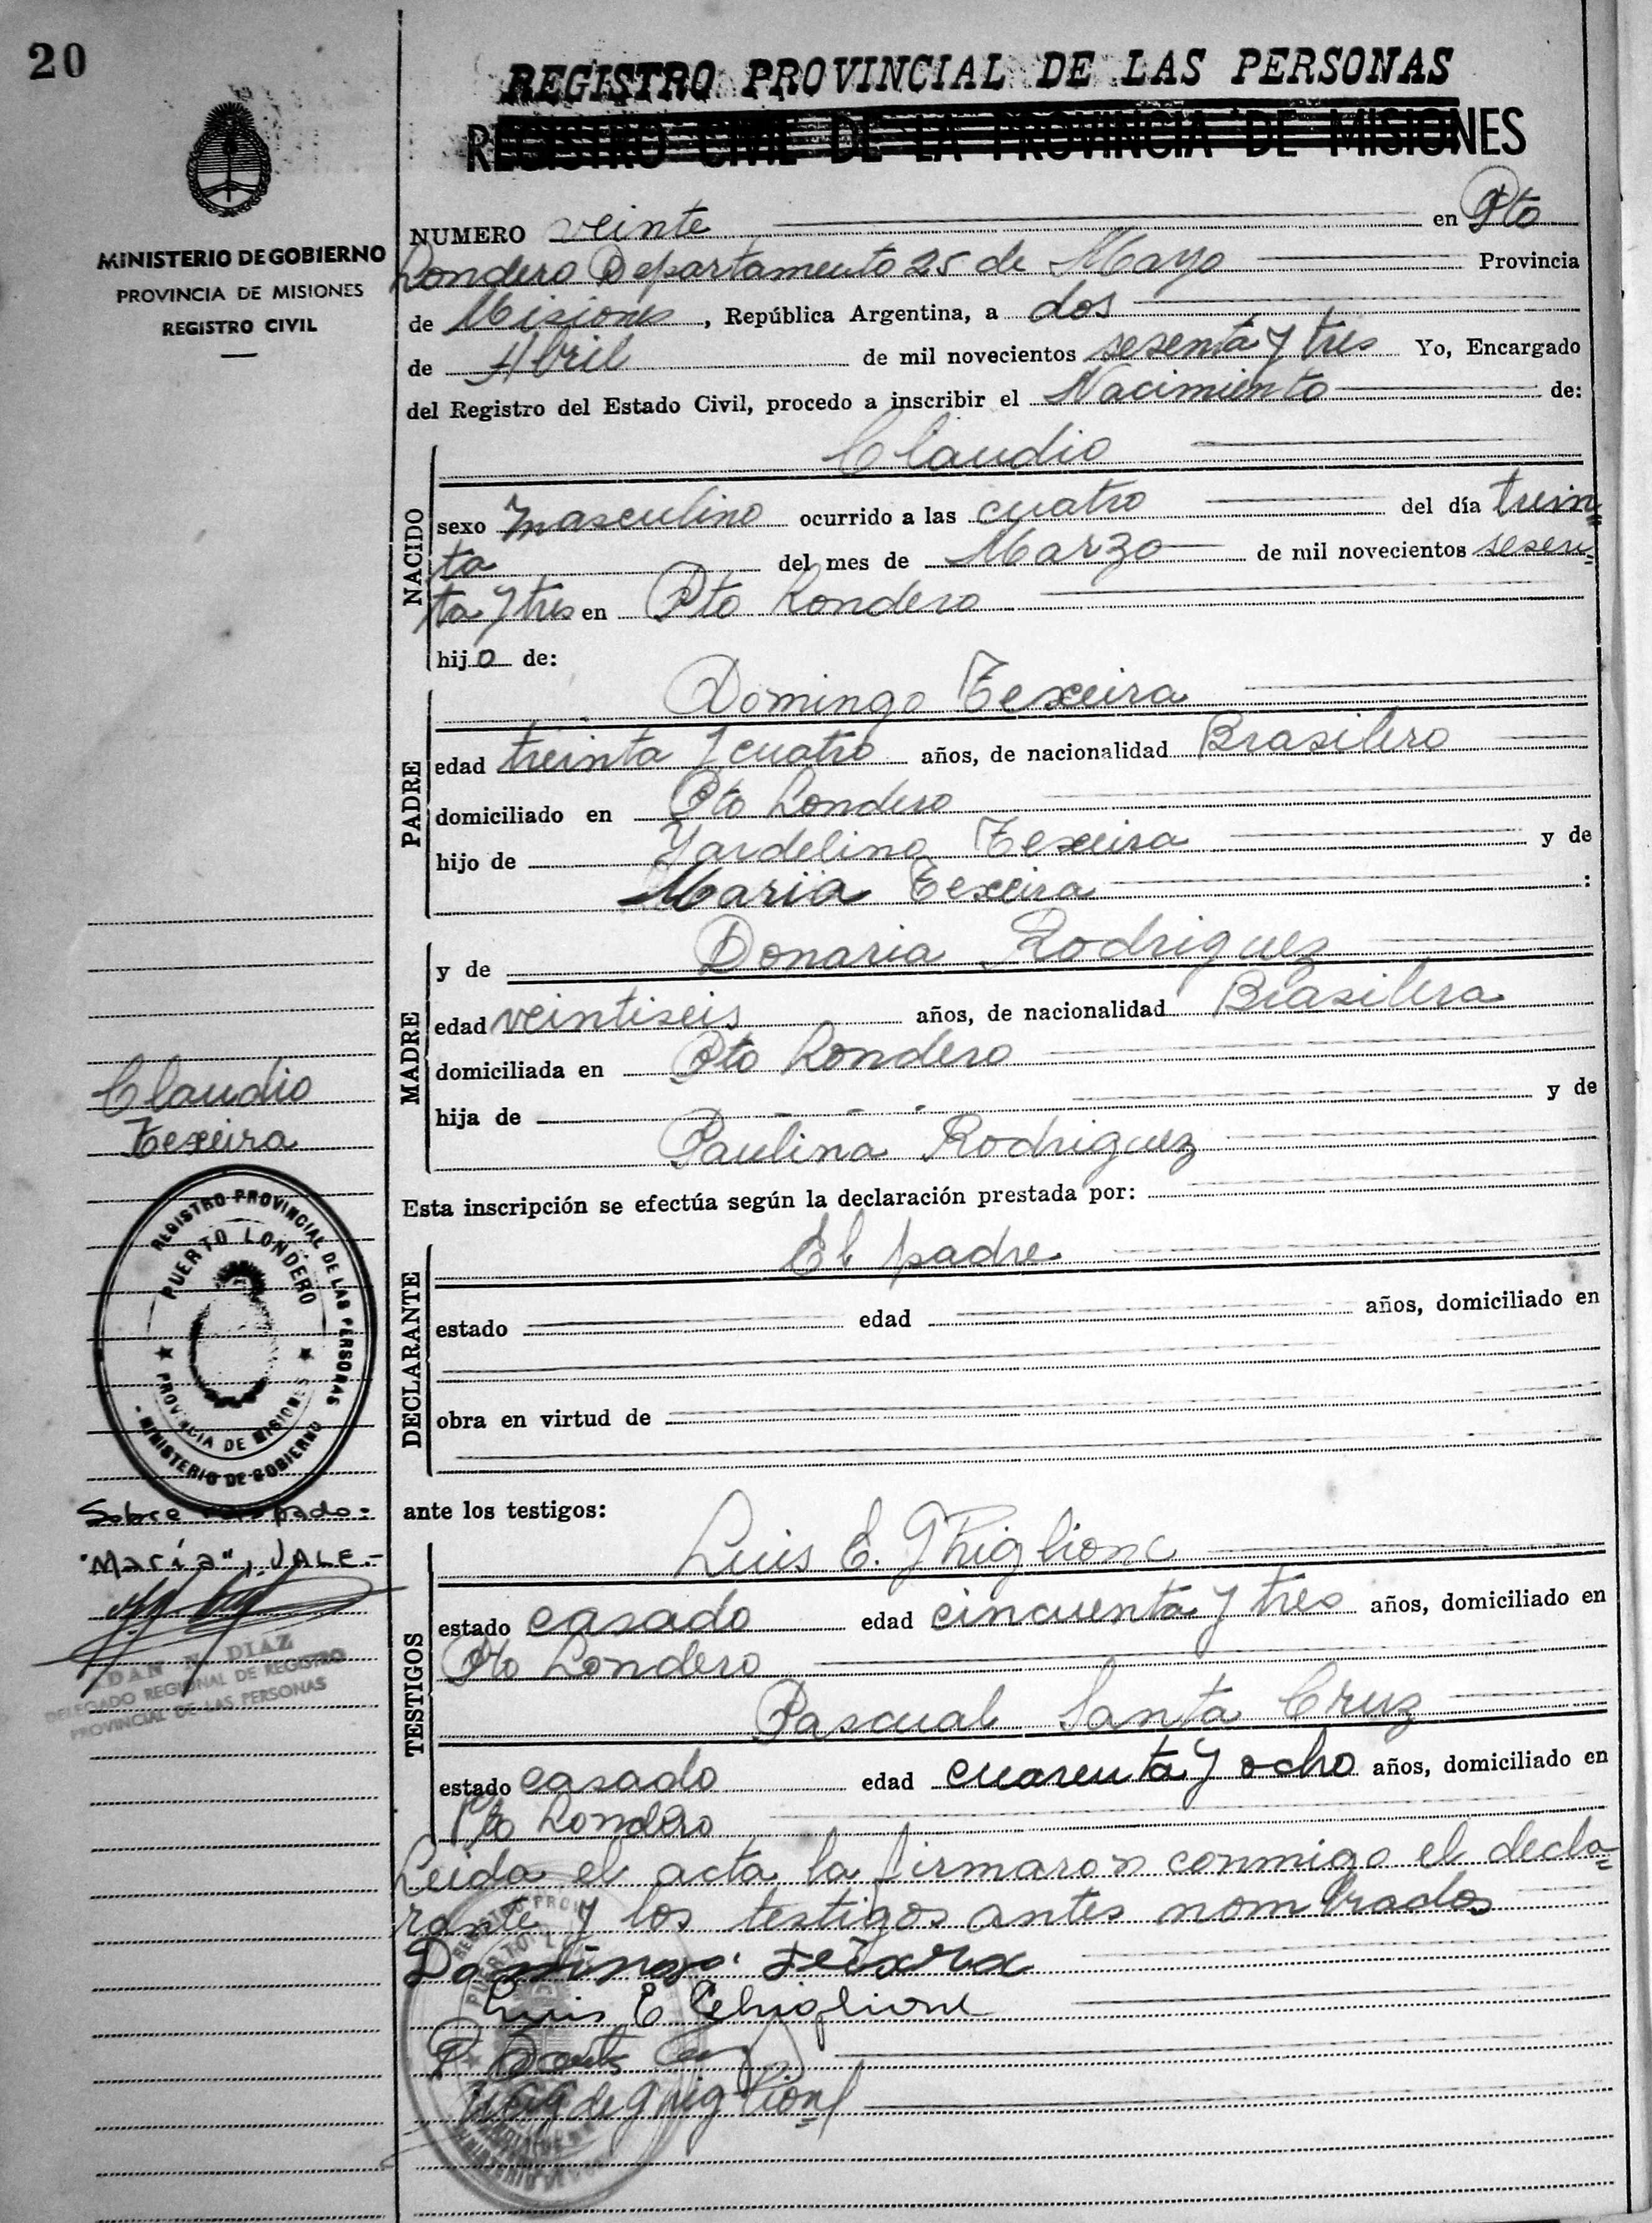 20
REGISTRO PROVINCIAL DE LAS PERSONAS
REGISTRO CIVIL DE LA PROVINCIA DE MISIONES
MINISTERIO DE GOBIERNO
PROVINCIA DE MISIONES
REGISTRO CIVIL
NUMERO veinte en Pto
Londero Departamento 25 de Mayo Provincia
de Misiones, República Argentina, a dos
de Abril de mil novecientos sesenta y tres Yo, Encargado
del Registro del Estado Civil, procedo a inscribir el Nacimiento de:
NACIDO
Claudio
sexo masculino ocurrido a las cuatro del día trein=
ta del mes de Marzo de mil novecientos sesen=
ta y tres en Pto Londero
hijo de:
PADRE
Domingo Texeira
edad treinta y cuatro años, de nacionalidad Brasilero
domiciliado en Pto Londero
hijo de Jardelino Texeira y de
Maria Texeira :
MADRE
y de Donaria Rodriguez
edad veintiseis años, de nacionalidad Brasilera
domiciliada en Pto Londero
hija de - - - y de
Paulina Rodriguez
Claudio
Texeira
Esta inscripción se efectúa según la declaración prestada por:
DECLARANTE
El padre
estado edad años, domiciliado en
obra en virtud de
REGISTRO PROVINCIAL DE LAS PERSONAS
PUERTO LONDERO
PROVINCIA DE MISIONES
- MINISTERIO DE GOBIERNO
Sobre raspado:
"María", VALE.-
DIAZ
DELEGADO REGIONAL DE REGISTRO
PROVINCIAL DE LAS PERSONAS
ante los testigos:
TESTIGOS
Luis E. Ghiglione
estado casado edad cincuenta y tres años, domiciliado en
Pto Londero
Pascual Santa Cruz
estado casado edad cuarenta y ocho años, domiciliado en
Pto Londero
Leida el acta la firmaron conmigo el decla=
rante y los testigos antes nombrados
Domingo Teixera
Luis E Ghiglione
P. Santa Cruz
de Ghiglione